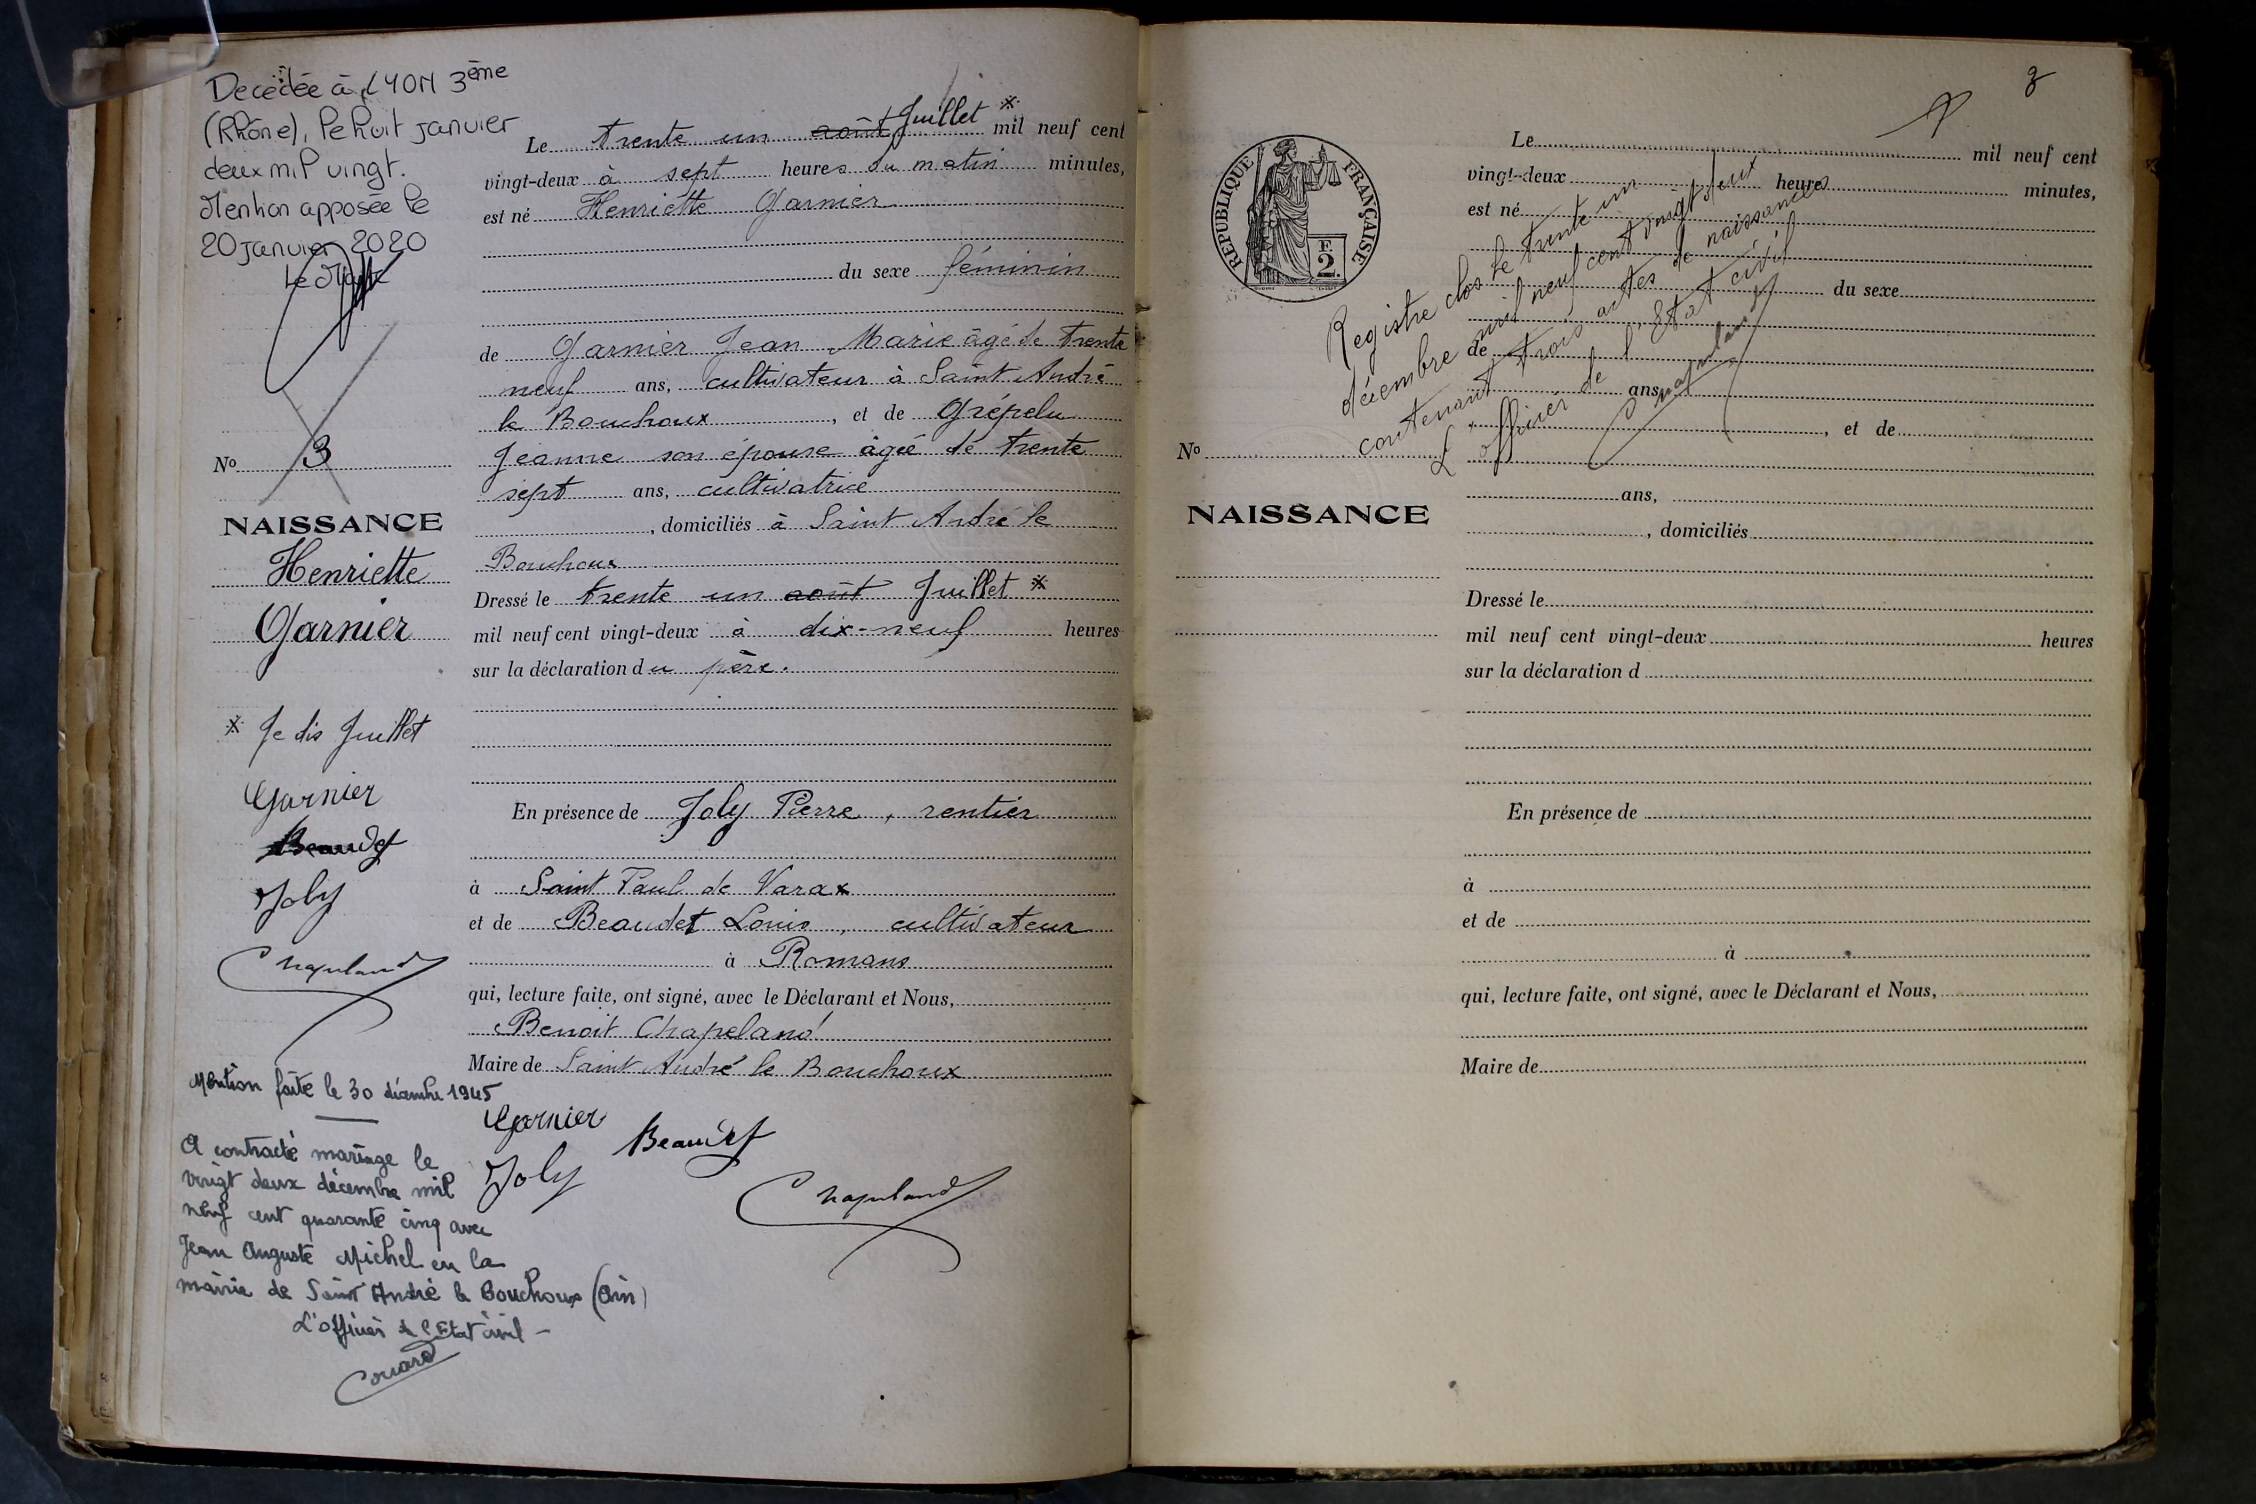 Decédée à LYON 3ème
(Rhône), le huit janvier
deux mil vingt.
Mention apposée le
20 janvier 2020
Le Maire
No 3
NAISSANCE
Henriette
Garnier
* Je dis Juillet
Garnier
Beaudet
Joly
Chapeland
Mention faite le 30 décembre 1945
A contracté mariage le
vingt deux décembre mil
neuf cent quarante cinq avec
Jean Auguste Michel en la
mairie de Saint André le Bouchoux (Ain)
L'officier de l'Etat civil -
Le trente un août Juillet * mil neuf cent
vingt-deux à sept heures du matin minutes,
est né Henriette Garnier
du sexe féminin
de Garnier Jean Marie âgé de trente
neuf ans, cultivateur à Saint André
le Bouchoux, et de Grépelu
Jeanne son épouse âgée de trente
sept ans, cultivatrice
, domiciliés à Saint André le
Bouchoux
Dressé le trente un août Juillet *
mil neuf cent vingt-deux à dix-neuf heures
sur la déclaration du père.
En présence de Joly Pierre, rentier
à Saint Paul de Varax
et de Beaudet Louis, cultivateur
à Romans
qui, lecture faite, ont signé, avec le Déclarant et Nous,
Benoit Chapeland
Maire de Saint André le Bouchoux
Garnier
Beaudet
Joly
Chapeland
3
RÉPUBLIQUE FRANÇAISE
F.
2.
Le mil neuf cent
vingt-deux heures minutes,
est né
du sexe
de
ans,
, et de
ans,
, domiciliés
Registre clos le trente un
décembre mil neuf cent vingt deux
contenant trois actes de naissances
L'officier de l'Etat civil
Chapeland
No
NAISSANCE
Dressé le
mil neuf cent vingt-deux heures
sur la déclaration d
En présence de
à
et de
à
qui, lecture faite, ont signé, avec le Déclarant et Nous,
Maire de